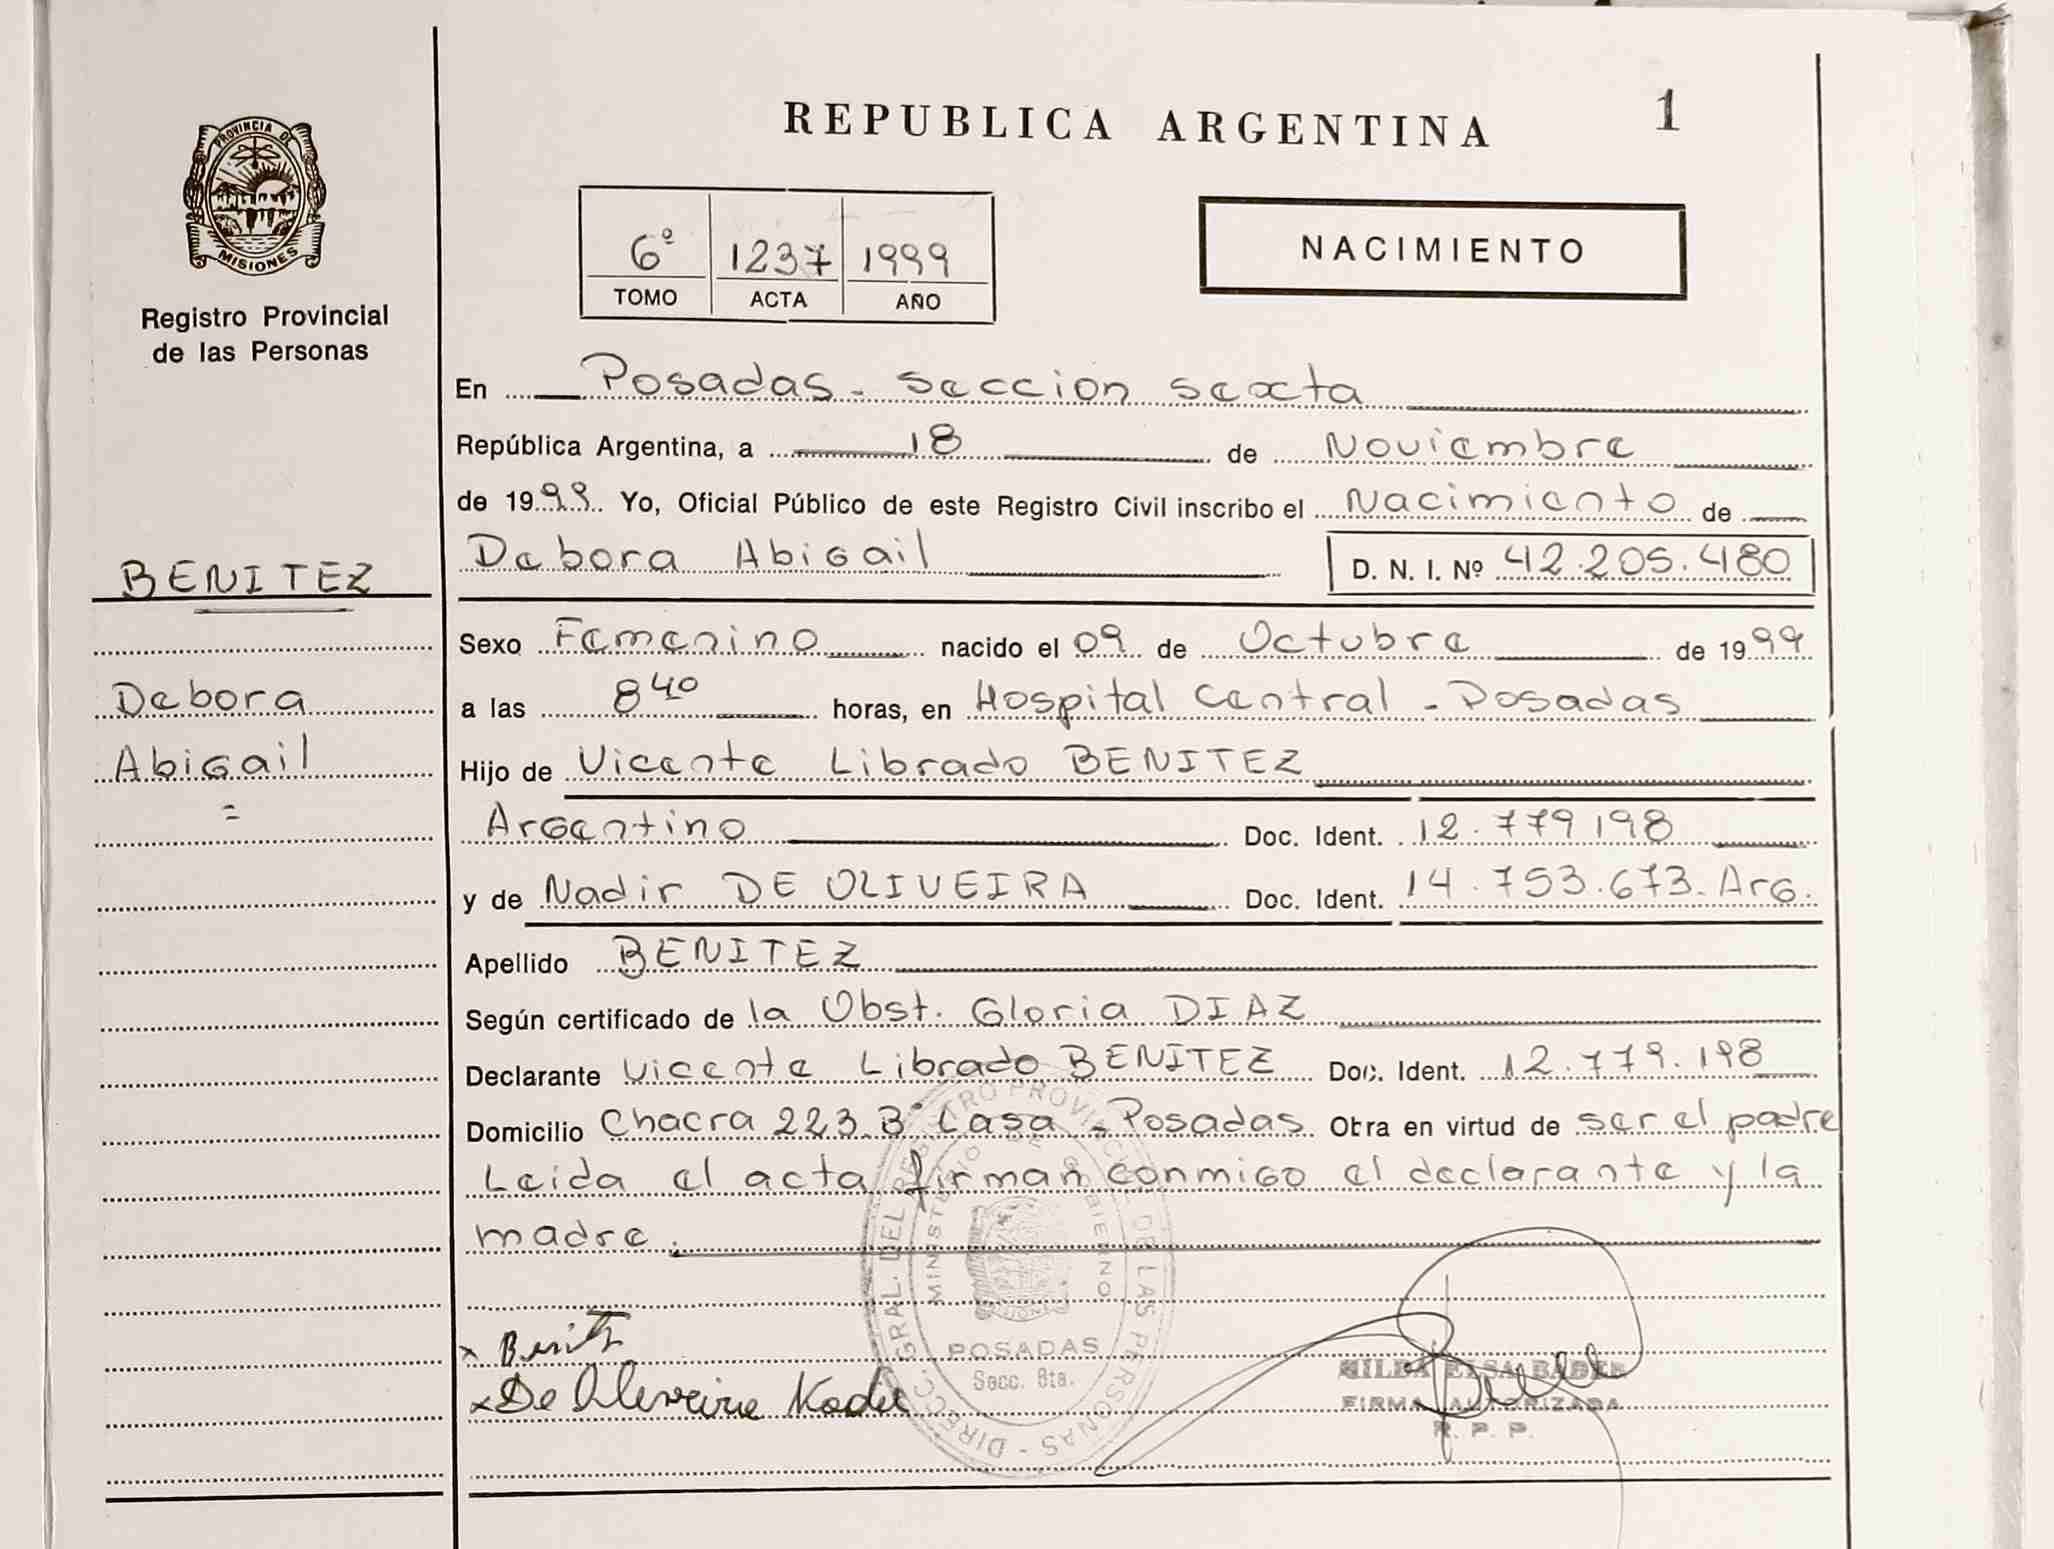 REPUBLICA ARGENTINA
1
PROVINCIA DE MISIONES
Registro Provincial
de las Personas
6º 1237 1999
TOMO ACTA AÑO
NACIMIENTO
En Posadas - Seccion sexta
República Argentina, a 18 de Noviembre
de 1999. Yo, Oficial Público de este Registro Civil inscribo el Nacimiento de
Debora Abigail D. N. I. Nº 42.205.480
BENITEZ
Sexo Femenino nacido el 09 de Octubre de 1999
Debora
a las 8 40 horas, en Hospital Central - Posadas
Abigail
Hijo de Vicente Librado BENITEZ
Argentino Doc. Ident. 12.779198
y de Nadir DE OLIVEIRA Doc. Ident. 14.753.673. Arg.
Apellido BENITEZ
Según certificado de la Obst. Gloria DIAZ
Declarante Vicente Librado BENITEZ Doc. Ident. 12.779.198
Domicilio Chacra 223 Bº Casa - Posadas Obra en virtud de ser el padre
Leida el acta firman conmigo el declarante y la
madre.
DIREC. GRAL. DEL REGISTRO PROVINCIAL DE LAS PERSONAS
MINISTERIO DE GOBIERNO
POSADAS
Secc. 6ta.
x Benitz
x De Oliveira Nadir
HILDA ELSA BADER
FIRMA AUTORIZADA
R. P. P.